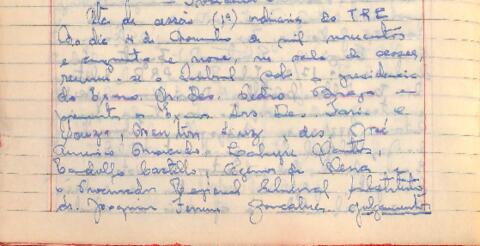 Ata da sessão (1ª) ordinária do TRE
Ao dia 4 de novembro de mil novecentos
e cinquenta e nove, na sala de sessões,
reuniu-se o Tribunal sob a presidencia
do Exmo. Sr. Des. Pedro Braga e
presentes os Exmos. Srs. Des. Faria e
Souza, Merolino Luz, drs. José
Americo Macedo,
Candolfo Castillo, e
o Procurador Regional Eleitoral substituto
dr. Joaquim Ferreira Gonçalves. Julgamentos